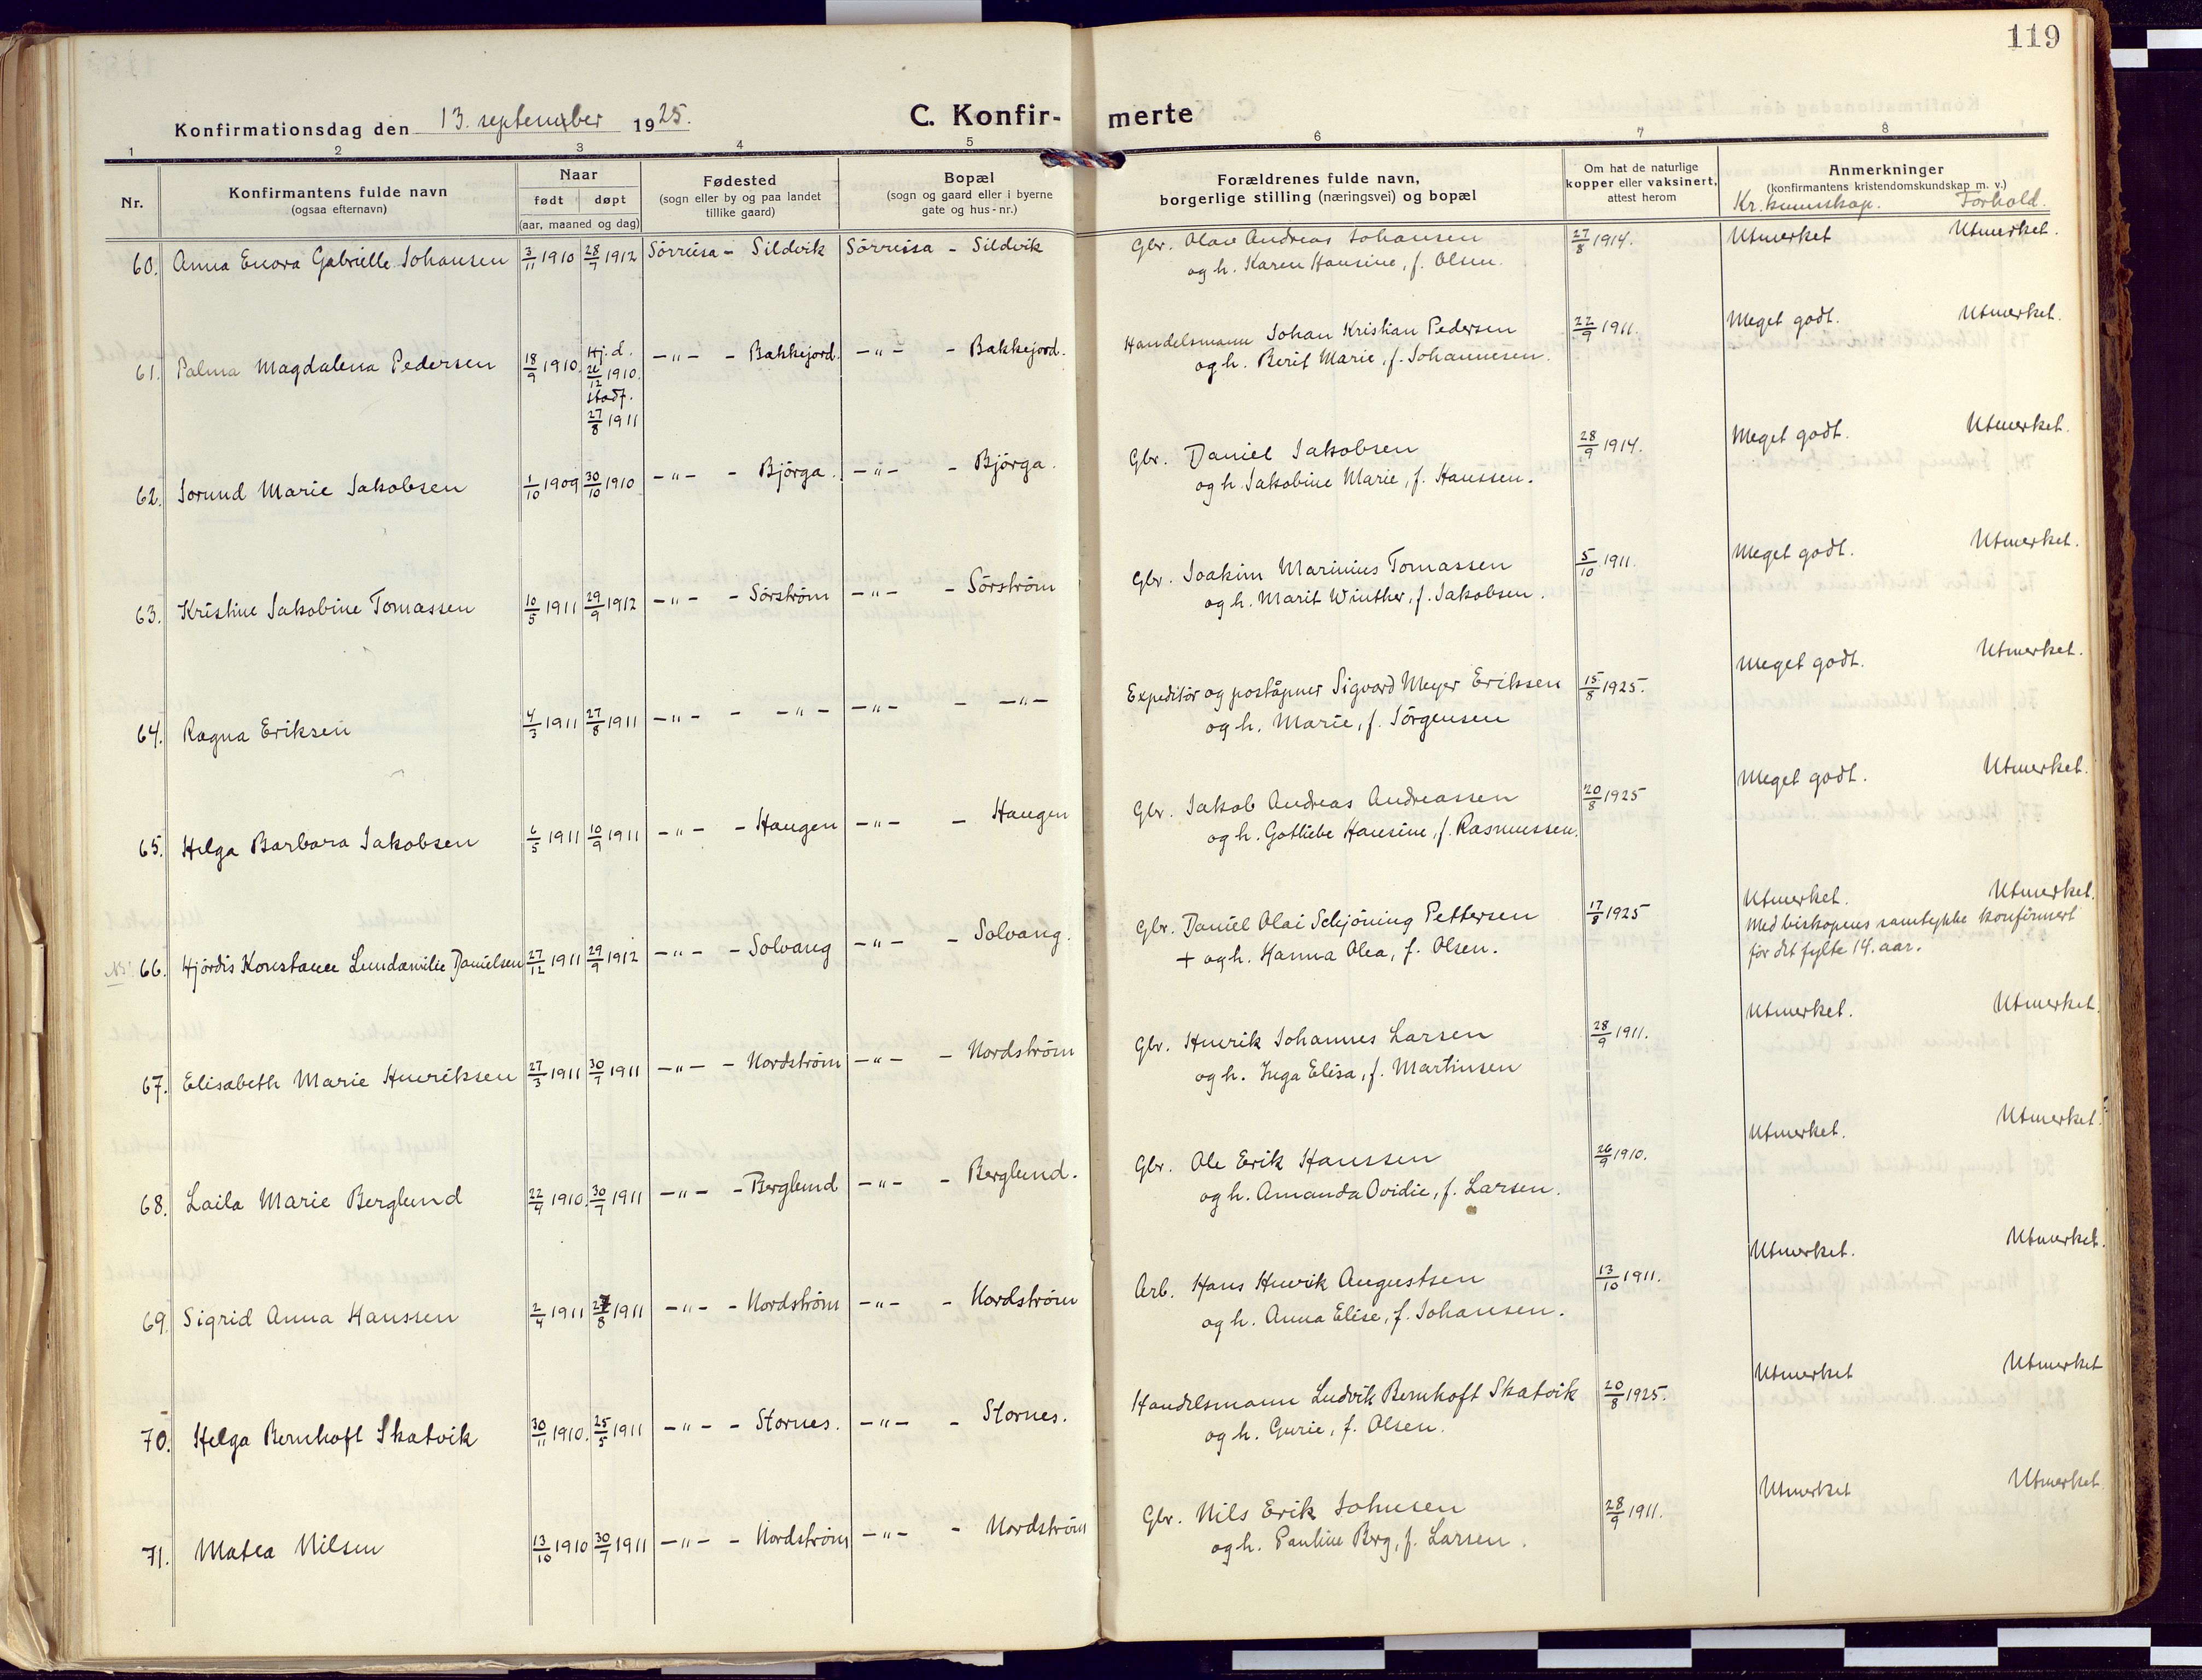 119
Konfirmationsdag den 13. september 1925.
C. Konfirmerte
1 2 3 4 5 6 7 8
Nr.
Konfirmantens fulde navn
(ogsaa efternavn)
Naar
født døpt
(aar, maaned og dag)
Fødested
(sogn eller by og paa landet
tillike gaard)
Bopæl
(sogn og gaard eller i byerne
gate og hus-nr.)
Forældrenes fulde navn,
borgerlige stilling (næringsvei) og bopæl
Om hat de naturlige
kopper eller vaksinert,
attest herom
Anmerkninger
(konfirmantens kristendomskundskap m. v.)
Kr. kunnskap. Forhold.
60. Anna Enora Gabrielle Johansen 3/11 1910 28/7 1912 Sörreisa - Sildvik Sörreisa - Sildvik Gbr. Olav Andreas Johansen 27/8 1914. Utmerket Utmerket.
og h. Karen Hansine, f. Olsen.
61. Palma Magdalena Pedersen 18/9 1910. Hj.d. 26/12 1910. stadf. 27/8 1911 -"- - Bakkejord. -"- - Bakkejord. Handelsmann Johan Kristian Pedersen 22/9 1911. Meget godt. Utmerket.
og h. Berit Marie, f. Johannesen.
62. Jorund Marie Jakobsen 1/10 1909 30/10 1910 -"- - Björga. -"- - Björga. Gbr. Daniel Jakobsen 28/9 1914. Meget godt. Utmerket.
og h. Jakobine Marie, f. Hanssen.
63. Kristine Jakobine Tomassen 10/5 1911 29/9 1912 -"- - Sörström -"- - Sörström Gbr. Joakim Marinius Tomassen 5/10 1911. Meget godt. Utmerket.
og h. Marit Winther, f. Jakobsen.
64. Ragna Eriksen 4/3 1911 27/8 1911 -"- - -"- -"- - -"- Expeditör og poståpner Sigvard Meyer Eriksen 15/8 1925. Meget godt. Utmerket.
og h. Marie, f. Jörgensen
65. Helga Barbara Jakobsen 6/5 1911 10/9 1911 -"- - Haugen -"- - Haugen Gbr. Jakob Andreas Andreassen 20/8 1925 Meget godt. Utmerket.
og h. Gotliebe Hansine, f. Rasmussen.
66. Hjördis Konstance Lundamilie Danielsen 27/12 1911 29/9 1912 -"- - Solvang -"- - Solvang. Gbr. Daniel Olai Schjöning Pettersen 17/8 1925 Utmerket. Utmerket.
+ og h. Hanna Olea, f. Olsen. Med biskopens samtykke konfirmert
før det fylte 14. aar.
67. Elisabeth Marie Henriksen 27/3 1911 30/7 1911 -"- - Nordström -"- - Nordström Gbr. Henrik Johannes Larsen 28/9 1911. Utmerket. Utmerket.
og h. Inga Elisa, f. Martinsen
68. Laila Marie Berglund 22/4 1910. 30/7 1911 -"- - Berglund -"- - Berglund. Gbr. Ole Erik Hanssen 26/9 1910. Utmerket. Utmerket.
og h. Amanda Ovidie, f. Larsen.
69. Sigrid Anna Hanssen 2/4 1911 27/8 1911 -"- - Nordström -"- - Nordström Arb. Hans Henrik Augustsen 13/10 1911. Utmerket. Utmerket.
og h. Anna Elise, f. Johansen.
70. Helga Bernhoft Skatvik 30/11 1910. 25/5 1911 -"- - Stornes. -"- - Stornes. Handelsmann Ludvik Bernhoft Skatvik 20/8 1925. Utmerket Utmerket
og h. Gurie, f. Olsen.
71. Matea Nilsen 13/10 1910 30/7 1911 -"- - Nordström -"- - Nordström Gbr. Nils Erik Johnsen 28/9 1911. Utmerket Utmerket.
og h. Pauline Berg, f. Larsen.